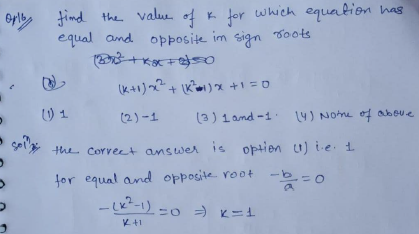 Q16 find the value of k for which equation has
equal and opposite in sign roots
(k+1)x² + (k²-1)x + 1 = 0
(1) 1 (2) -1 (3) 1 and -1. (4) None of above
solⁿ the correct answer is option (1) i.e. 1
for equal and opposite root -b/a = 0
-(k²-1)/k+1 = 0 ⇒ k = 1